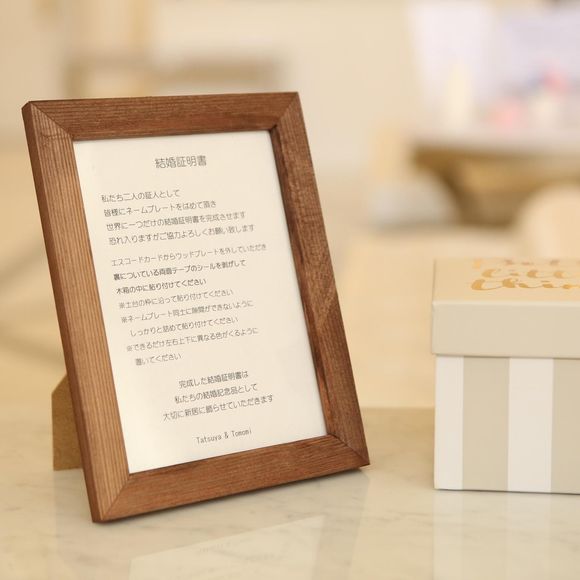 結婚証明書
私たち二人の証人として
皆様にネームプレートをはめて頂き
世界に一つだけの結婚証明書を完成させます
恐れ入りますがご協力よろしくお願い致します
エスコードカードからウッドプレートを外していただき
裏についている両面テープのシールを剥がして
木箱の中に貼り付けてください
※土台の枠に沿って貼り付けてください
※ネームプレート同士に隙間ができないように
しっかりと詰めて貼り付けてください
※できるだけ左右上下に異なる色がくるように
置いてください
完成した結婚証明書は
私たちの結婚記念品として
大切に新居に飾らせていただきます
Tatsuya & Tomomi